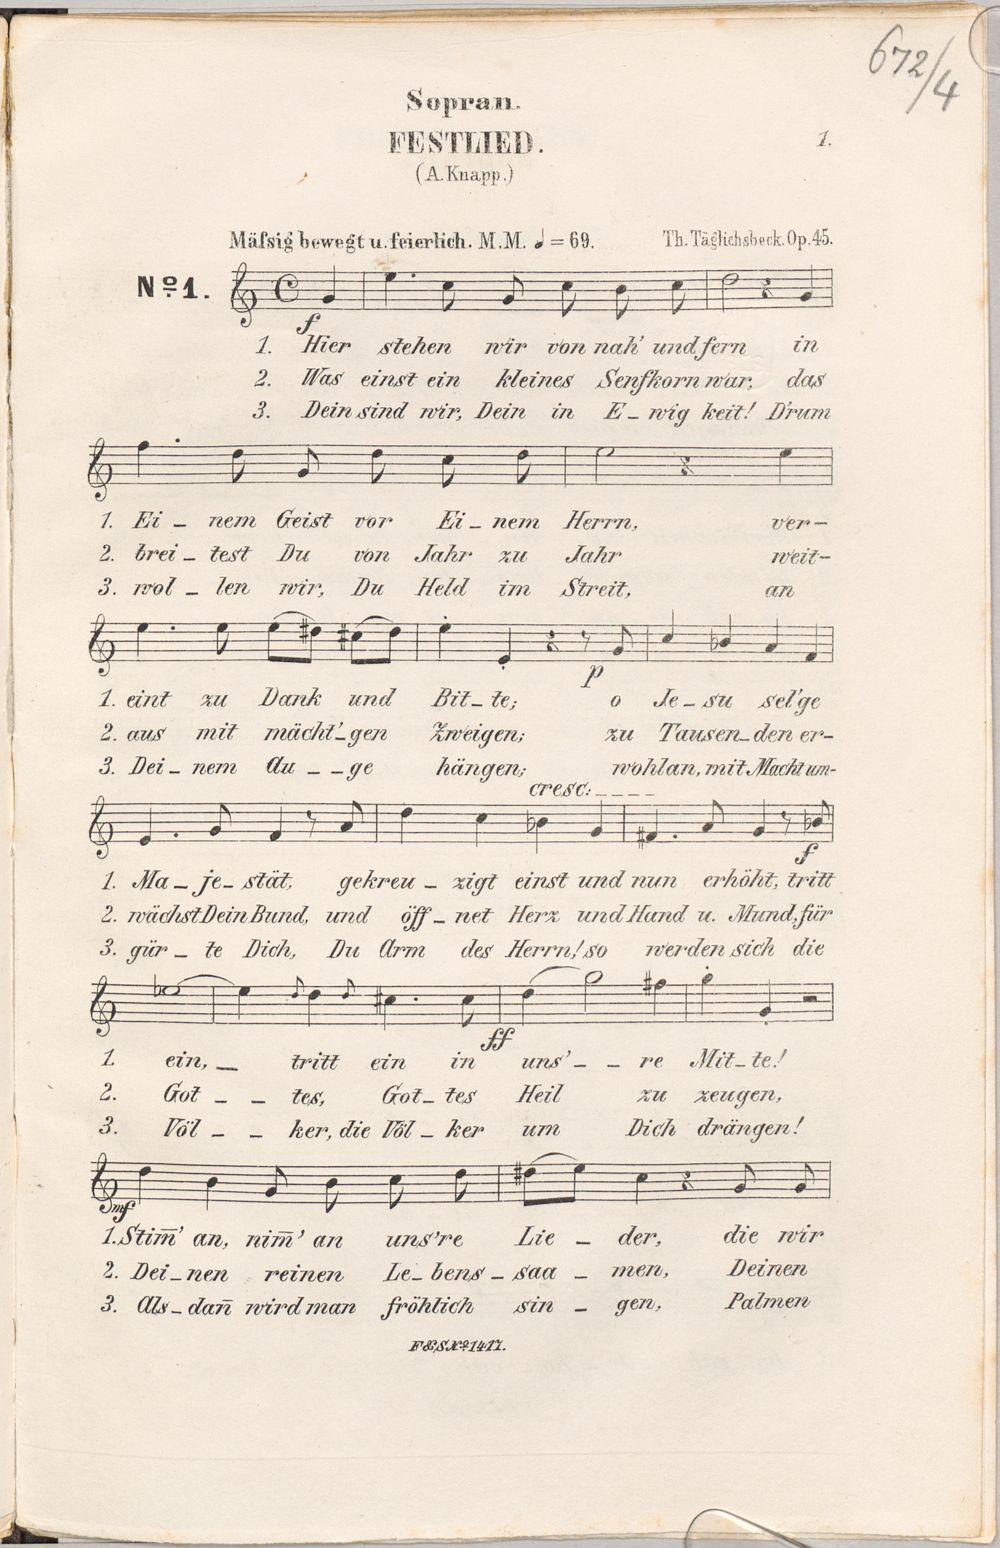 672/4
Sopran.
FESTLIED.
1.
(A. Knapp.)
Mäſsig bewegt u. feierlich. M.M. ♩ = 69.
Th. Täglichsbeck. Op. 45.
Nº 1.
f
1. Hier stehen wir von nah' und fern in
2. Was einst ein kleines Senfkorn war, das
3. Dein sind wir, Dein in E_wig keit! D'rum
1. Ei_nem Geist vor Ei_nem Herrn, ver-
2. brei_test Du von Jahr zu Jahr weit-
3. wol_len wir, Du Held im Streit, an
p
1. eint zu Dank und Bit_te; o Je_su sel'ge
2. aus mit mächt'_gen Zweigen; zu Tausen_den er-
3. Dei_nem Au__ge hängen; wohlan, mit Macht um-
cresc:____
f
1. Ma_je_stät, gekreu_zigt einst und nun erhöht, tritt
2. wächst Dein Bund, und öff_net Herz und Hand u. Mund, für
3. gür_te Dich, Du Arm des Herrn! so werden sich die
ff
1 ein,_ tritt ein in uns'__re Mit_te!
2. Got__tes, Got_tes Heil zu zeugen,
3. Völ__ker, die Völ_ker um Dich drängen!
mf
1. Stim̄' an, nim̄' an uns're Lie_der, die wir
2. Dei_nen reinen Le_bens_saa_men, Deinen
3. Als_dan̄ wird man fröhlich sin_gen, Palmen
F & S Nº 1417.